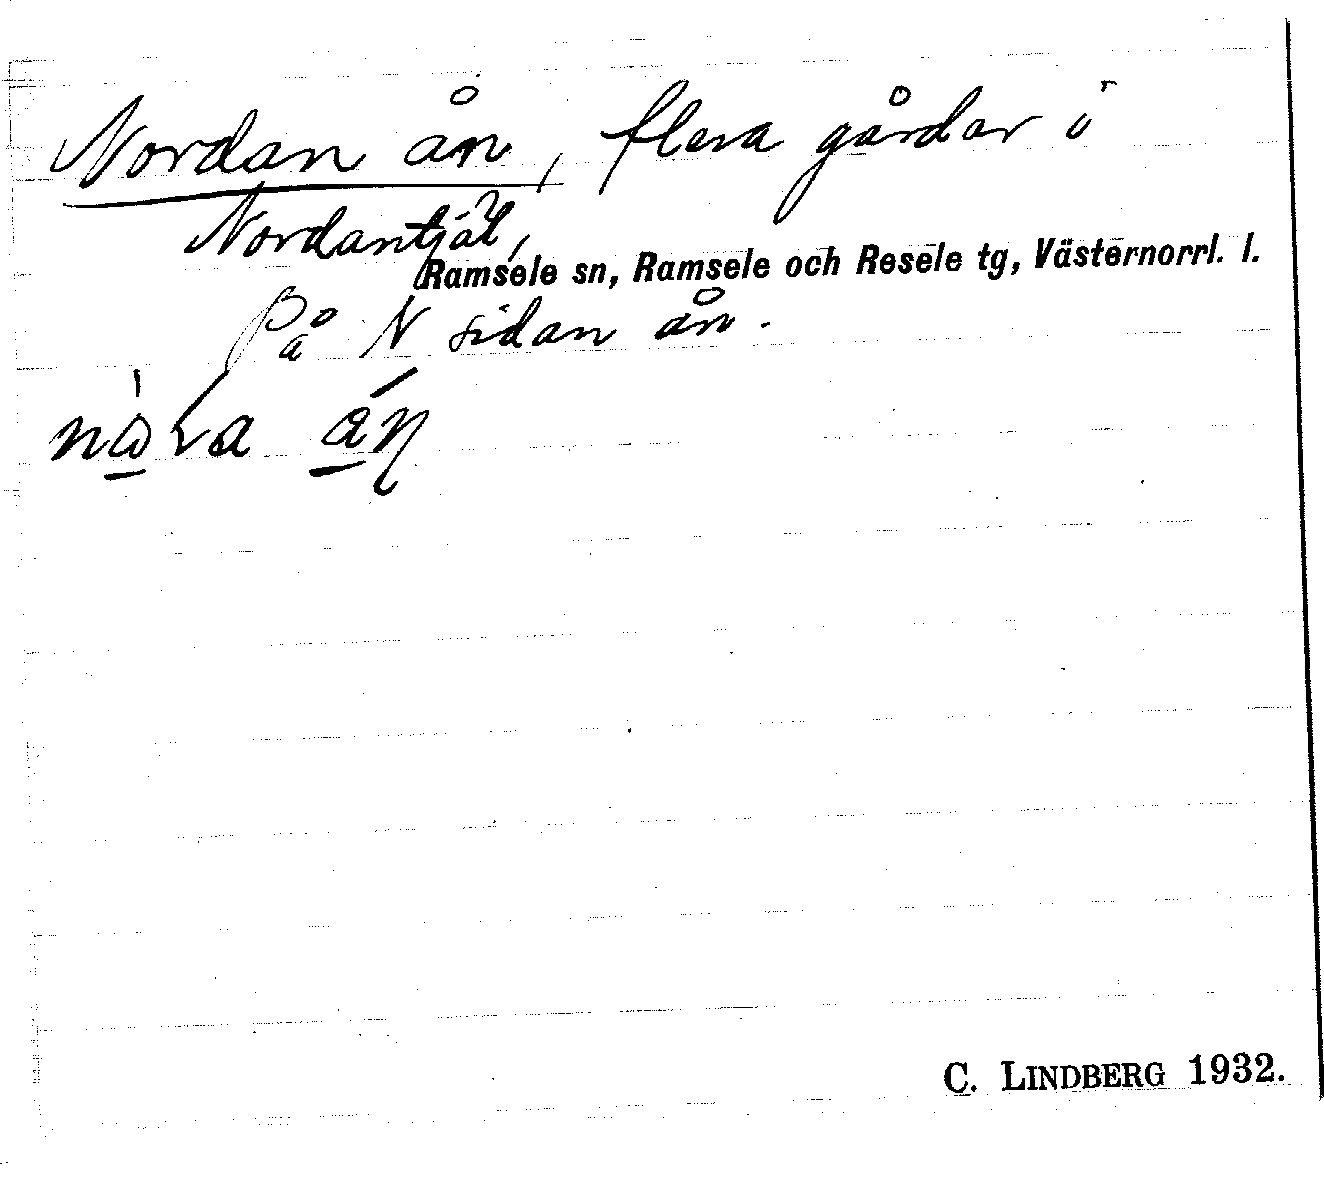 Nordan ån, flera gårdar i
Nordantjäl,
Ramsele sn, Ramsele och Resele tg, Västernorrl. l.
På N sidan ån.
C. LINDBERG 1932.